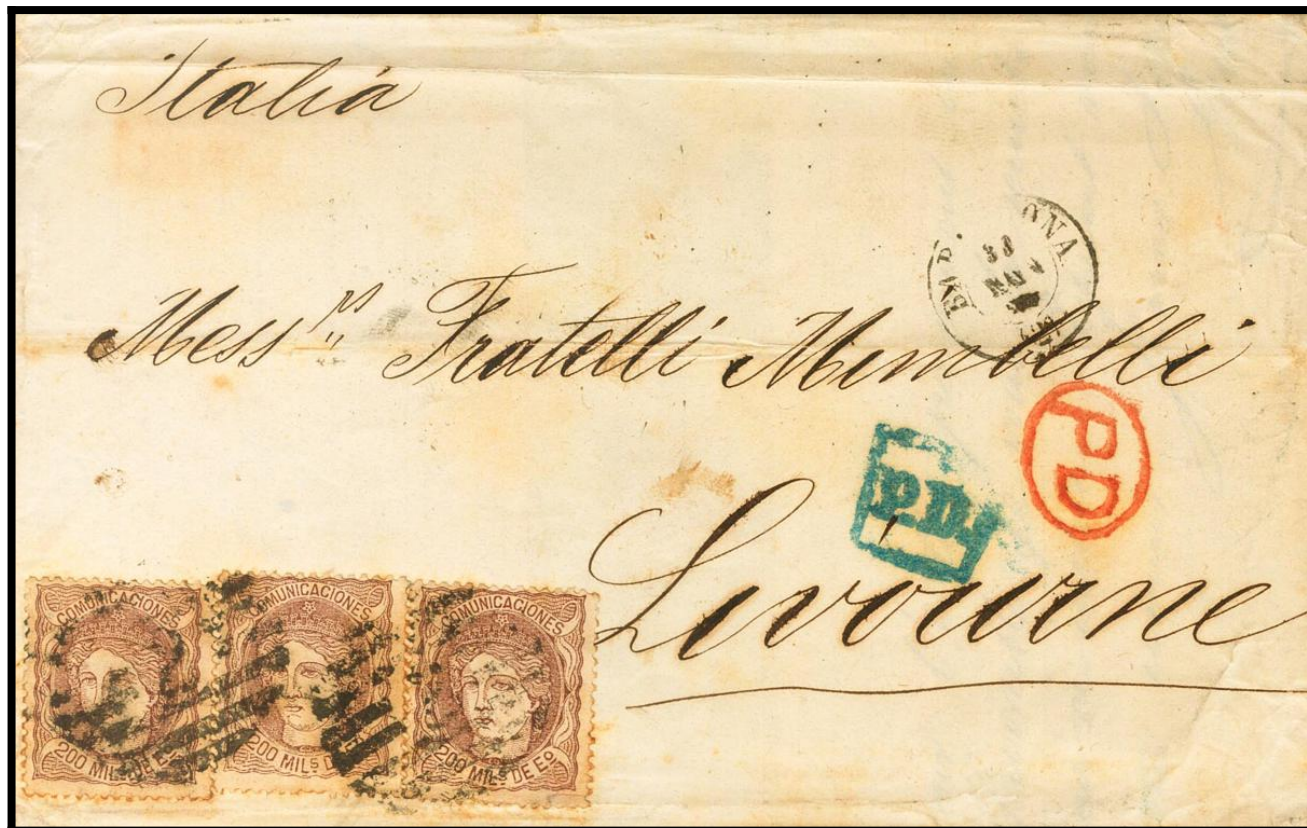 Italia
ONA
Mess.rs Fratelli Mimbelli
PD
P.D.
Livourne
COMUNICACIONES
200 MILS DE E
COMUNICACIONES
200 MILS D
COMUNICACIONES
200 MILS DE Eo